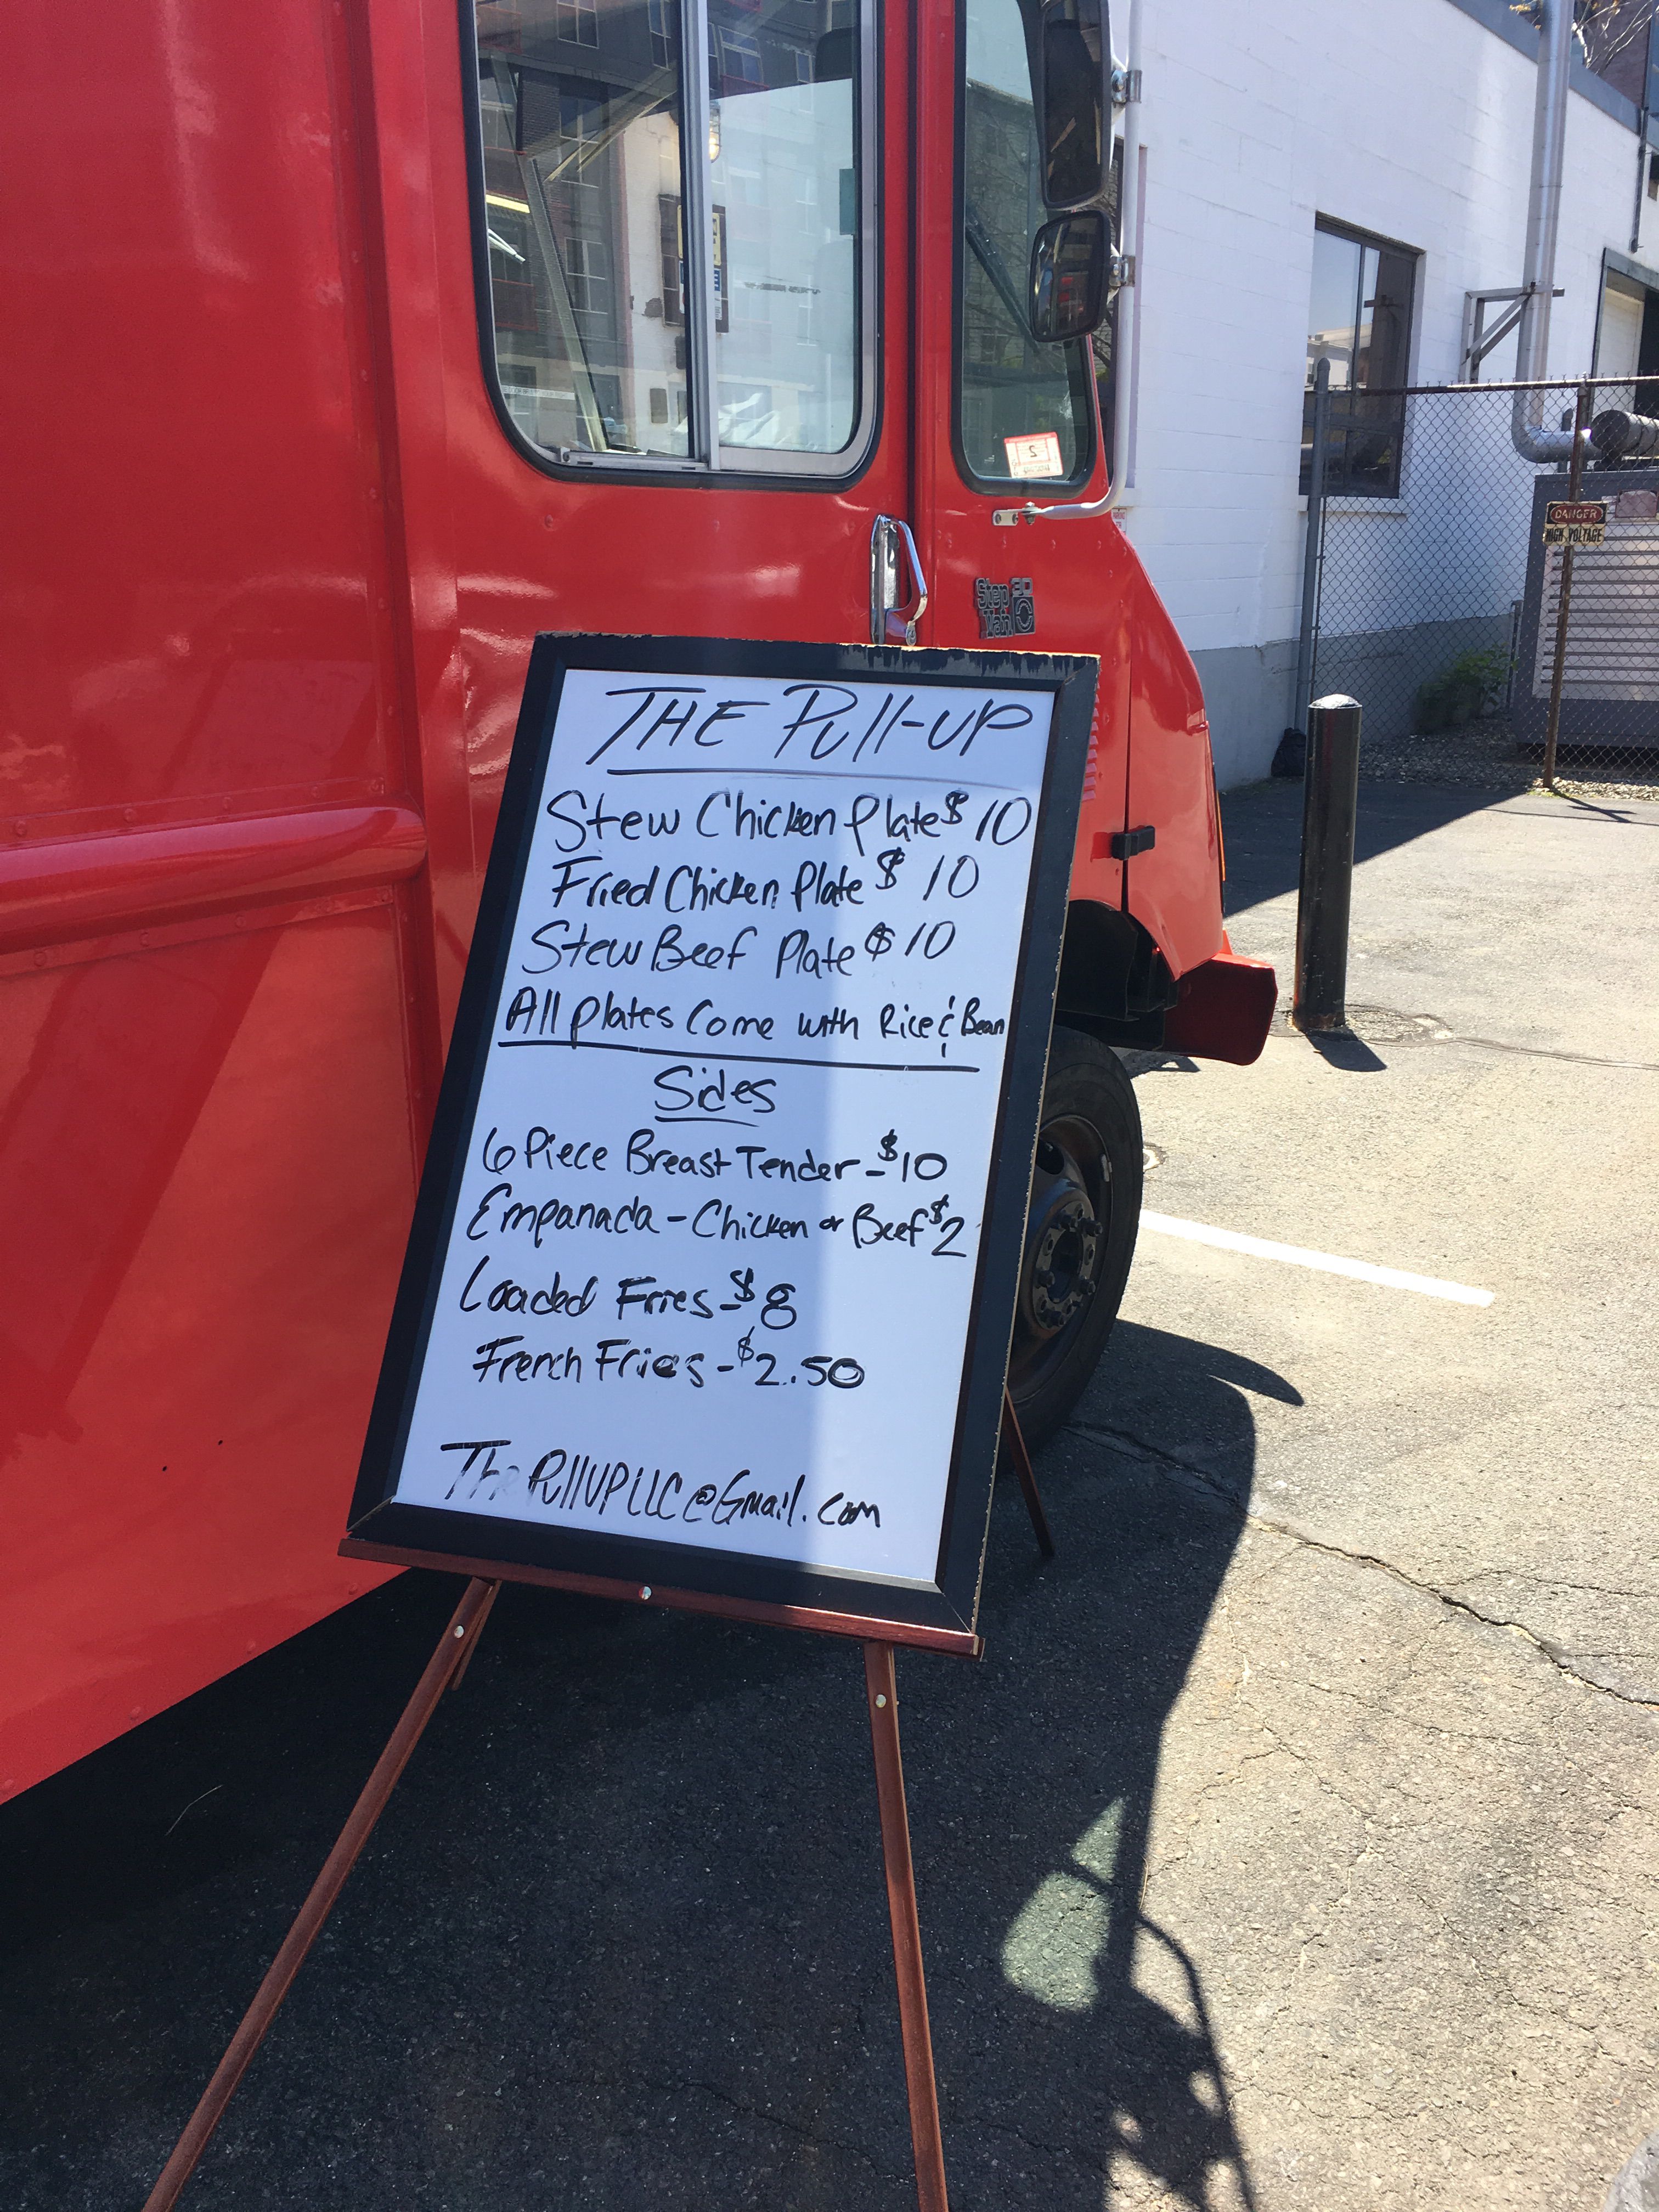 THE Pull-UP
Stew Chicken Plate $10
Fried Chicken Plate $10
Stew Beef Plate $10
All plates Come with Rice & Bean
Sides
6 Piece Breast Tender - $10
Empanada - Chicken or Beef $2
Loaded Fries - $8
French Fries - $2.50
The PullUPLLC@Gmail.com
Step
Van
30
DANGER
HIGH VOLTAGE
2